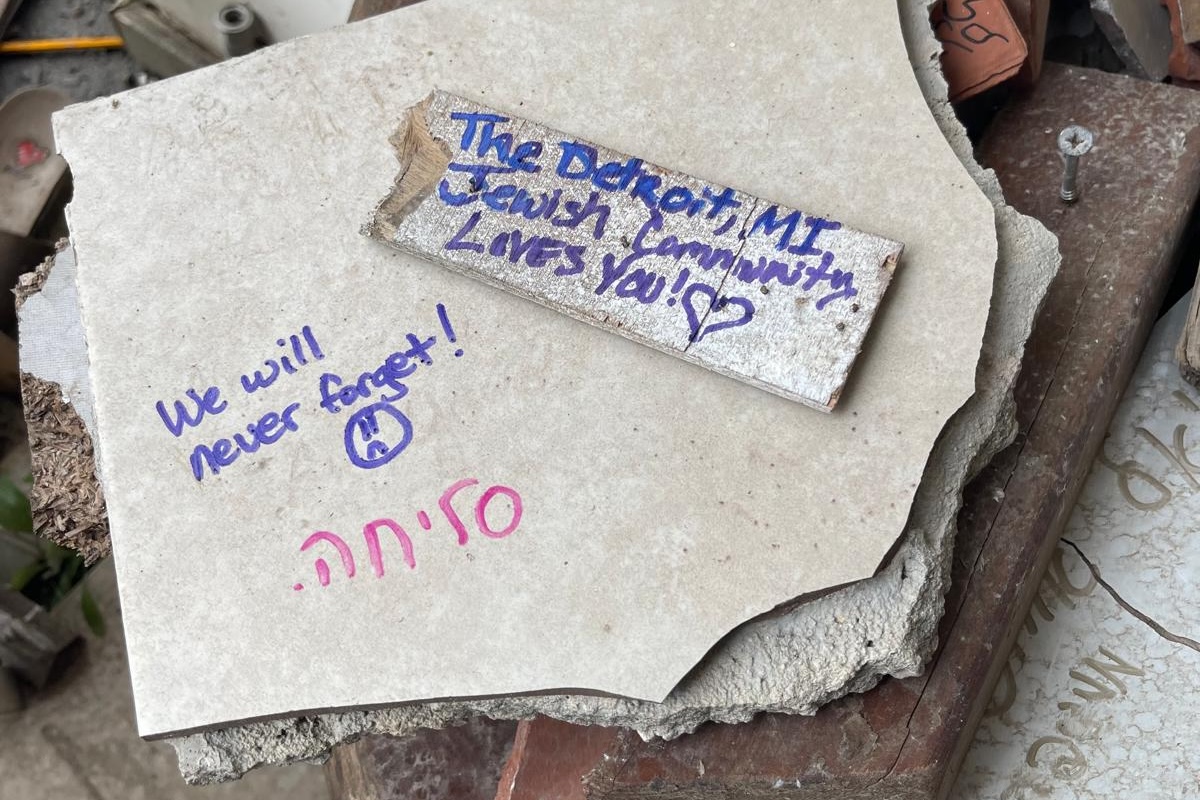 The Detroit, MI
Jewish Community
LOVES YOU!♡
We will
never forget!
סליחה.